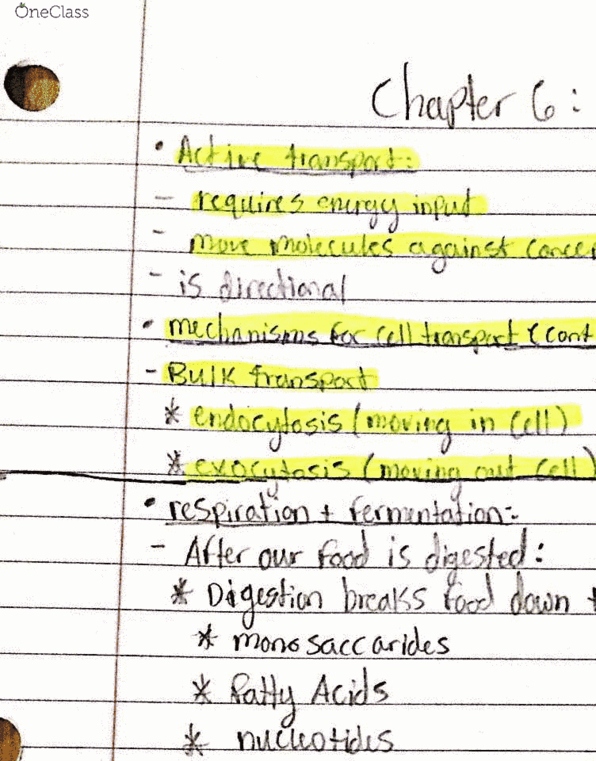 OneClass
Chapter 6:
• Active transport:
- requires energy input
- move molecules against concen
- is directional
• mechanisms for cell transport (cont
- Bulk transport
* endocytosis (moving in cell)
* exocytosis (moving out cell)
• respiration + fermentation:
- After our food is digested:
* Digestion breaks food down t
* monosaccarides
* fatty Acids
* nucleotides